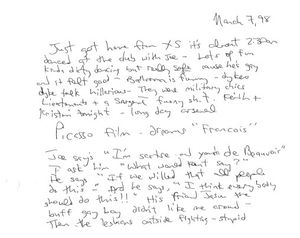 March 7, 98
Just got home from XS it's about 2:30am
danced at the club with Joe - Lots of fun
kinda dirty dancing but really safe cause he's gay
and it felt good - Bathroom is funny - dykes
dyke talk hillarious - They were military chics
Lieutenants + a Sargent funny sh.t. Keith +
Kristin tonight - long day around
Picasso Film - dreams "Francois"
Joe says "I'm sartre and you're de Beauvoir"
I ask him "what would Kant say?"
He says "If we willed that all people
do this - And he says, "I think everybody
should do this!!" His friend Jesse the
buff gay boy didn't like me around -
Then the lesbians outside fighting - stupid